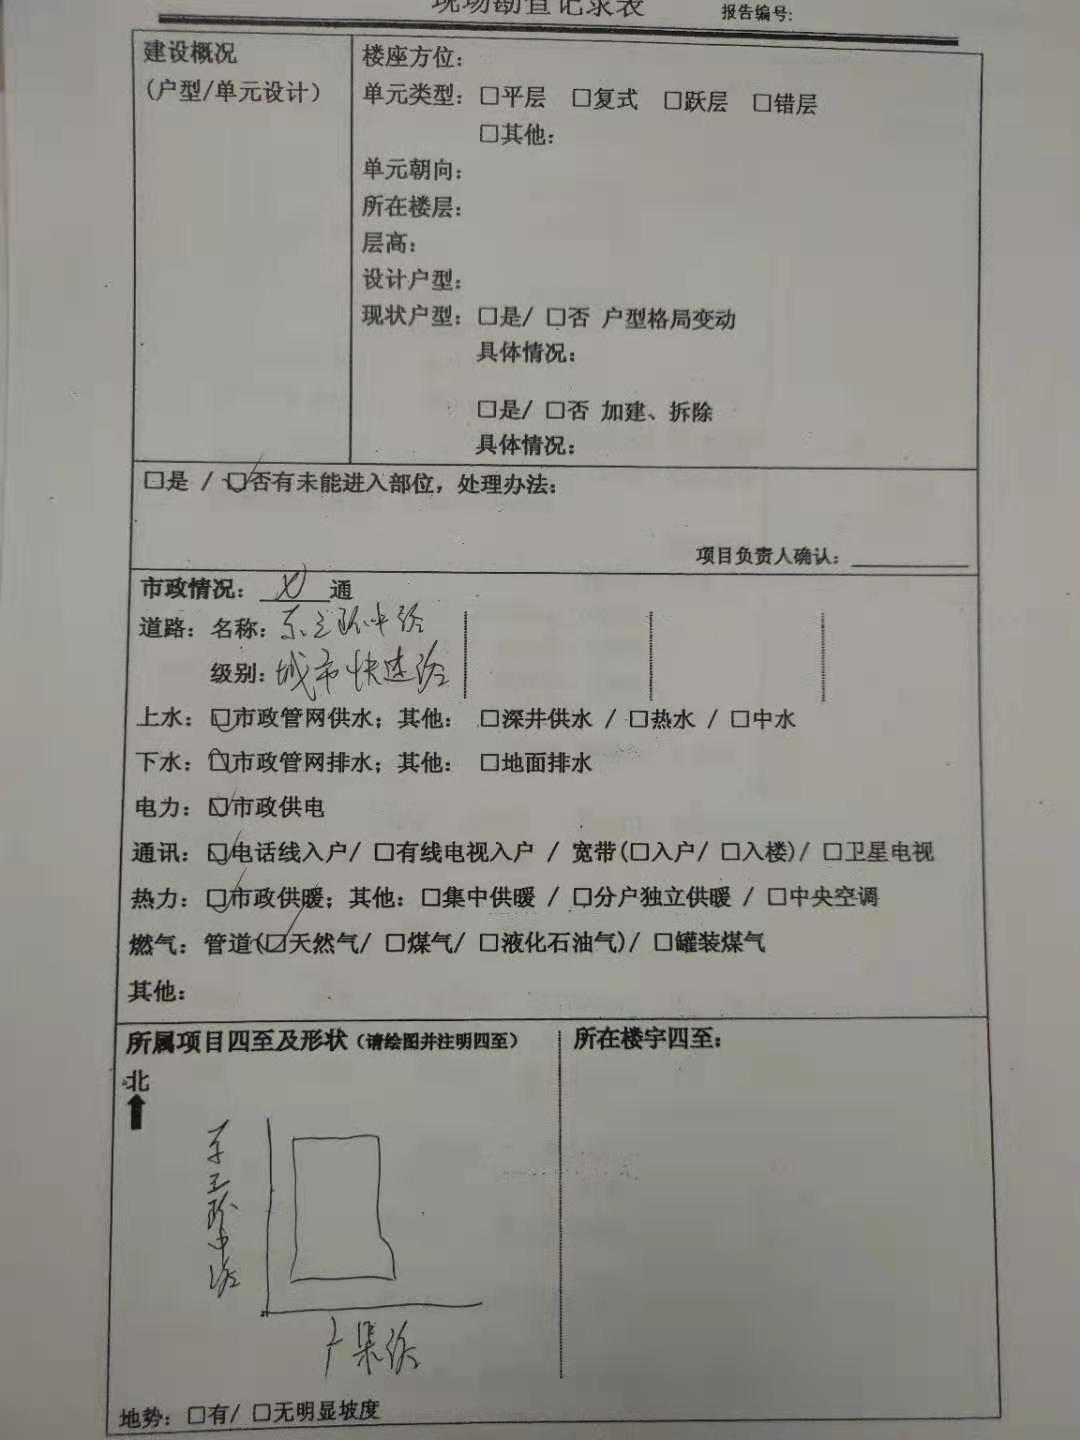 现场勘查记录表
报告编号:
建设概况
(户型/单元设计)
楼座方位:
单元类型: □平层 □复式 □跃层 □错层
□其他:
单元朝向:
所在楼层:
层高:
设计户型:
现状户型: □是/ □否 户型格局变动
具体情况:
□是/ □否 加建、拆除
具体情况:
□是 / ☑否有未能进入部位, 处理办法:
项目负责人确认:
市政情况: 七 通
道路: 名称: 东三环中路
级别: 城市快速路
上水: ☑市政管网供水; 其他: □深井供水 / □热水 / □中水
下水: ☑市政管网排水; 其他: □地面排水
电力: ☑市政供电
通讯: ☑电话线入户/ □有线电视入户 / 宽带(□入户/ □入楼)/ □卫星电视
热力: ☑市政供暖; 其他: □集中供暖 / □分户独立供暖 / □中央空调
燃气: 管道(☑天然气/ □煤气/ □液化石油气)/ □罐装煤气
其他:
所属项目四至及形状(请绘图并注明四至)
所在楼宇四至:
北
东三环中路
广渠路
地势: □有/ □无明显坡度